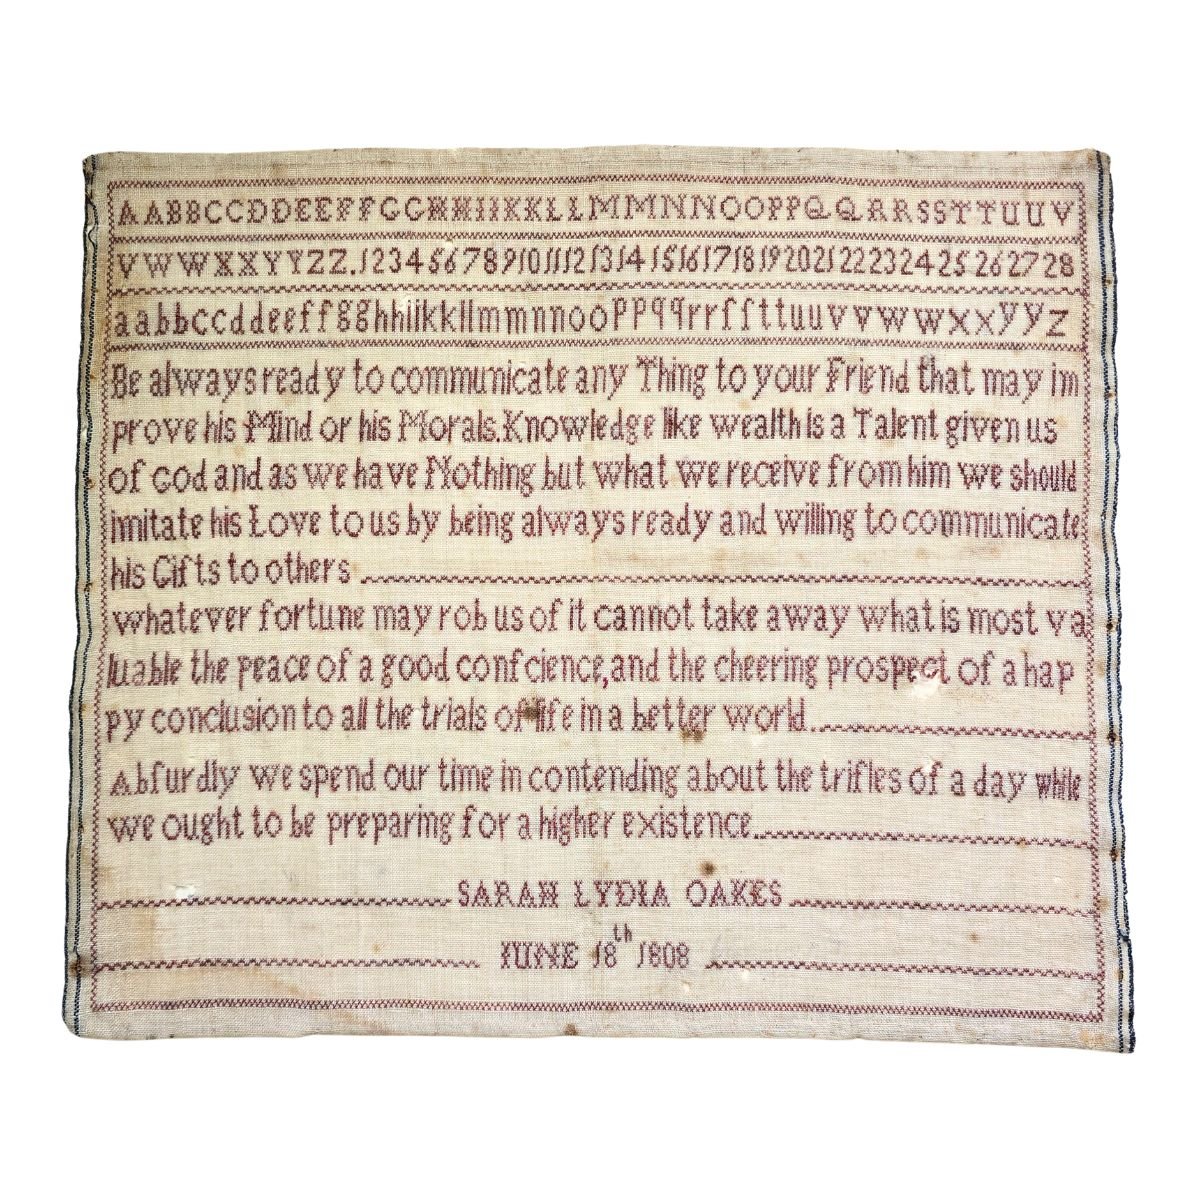 AABBCCDDEEFFGGHHIIKKLLMMNNOOPPQQRRSSTTUUV
VWWXXYYZZ.12345678910111213141516171819202122232425262728
aabbccddeeffgghhiikkllmmnnooppqqrrſſttuuvvwwxxyyz
Be always ready to communicate any Thing to your Friend that may im
prove his Mind or his Morals. Knowledge like wealth is a Talent given us
of God and as we have Nothing but what we receive from him we should
imitate his Love to us by being always ready and willing to communicate
his Gifts to others
whatever fortune may rob us of it cannot take away what is most va
luable the peace of a good conſcience, and the cheering prospect of a hap
py conclusion to all the trials of life in a better world.
Abſurdly we spend our time in contending about the trifles of a day while
we ought to be preparing for a higher existence.
SARAH LYDIA OAKES
IUNE 18th 1808